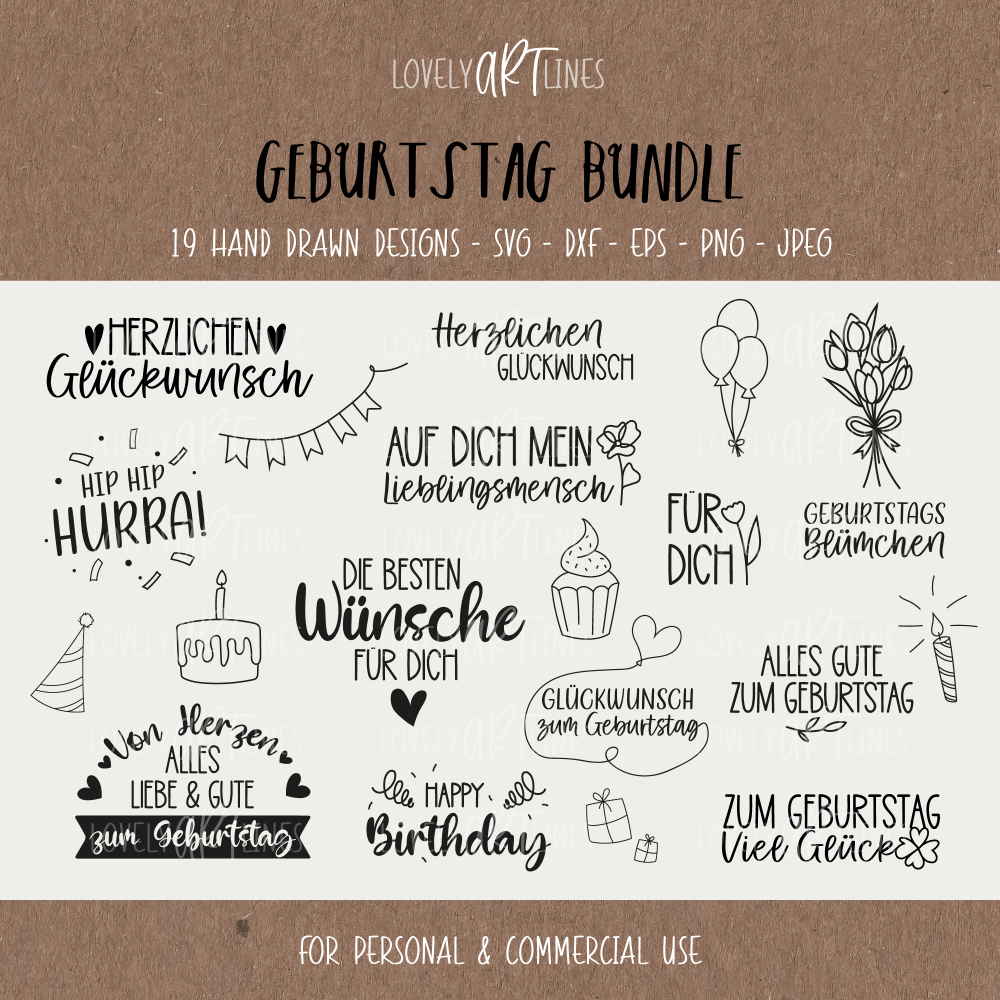 LOVELY ART LINES
GEBURTSTAG BUNDLE
19 HAND DRAWN DESIGNS - SVG - DXF - EPS - PNG - JPEG
HERZLICHEN
Glückwunsch
Herzlichen
GLÜCKWUNSCH
AUF DICH MEIN
Lieblingsmensch
HIP HIP
HURRA!
FÜR
DICH
GEBURTSTAGS
Blümchen
DIE BESTEN
Wünsche
FÜR DICH
GLÜCKWUNSCH
zum Geburtstag
ALLES GUTE
ZUM GEBURTSTAG
Von Herzen
ALLES
LIEBE & GUTE
zum Geburtstag
HAPPY
Birthday
ZUM GEBURTSTAG
Viel Glück
FOR PERSONAL & COMMERCIAL USE